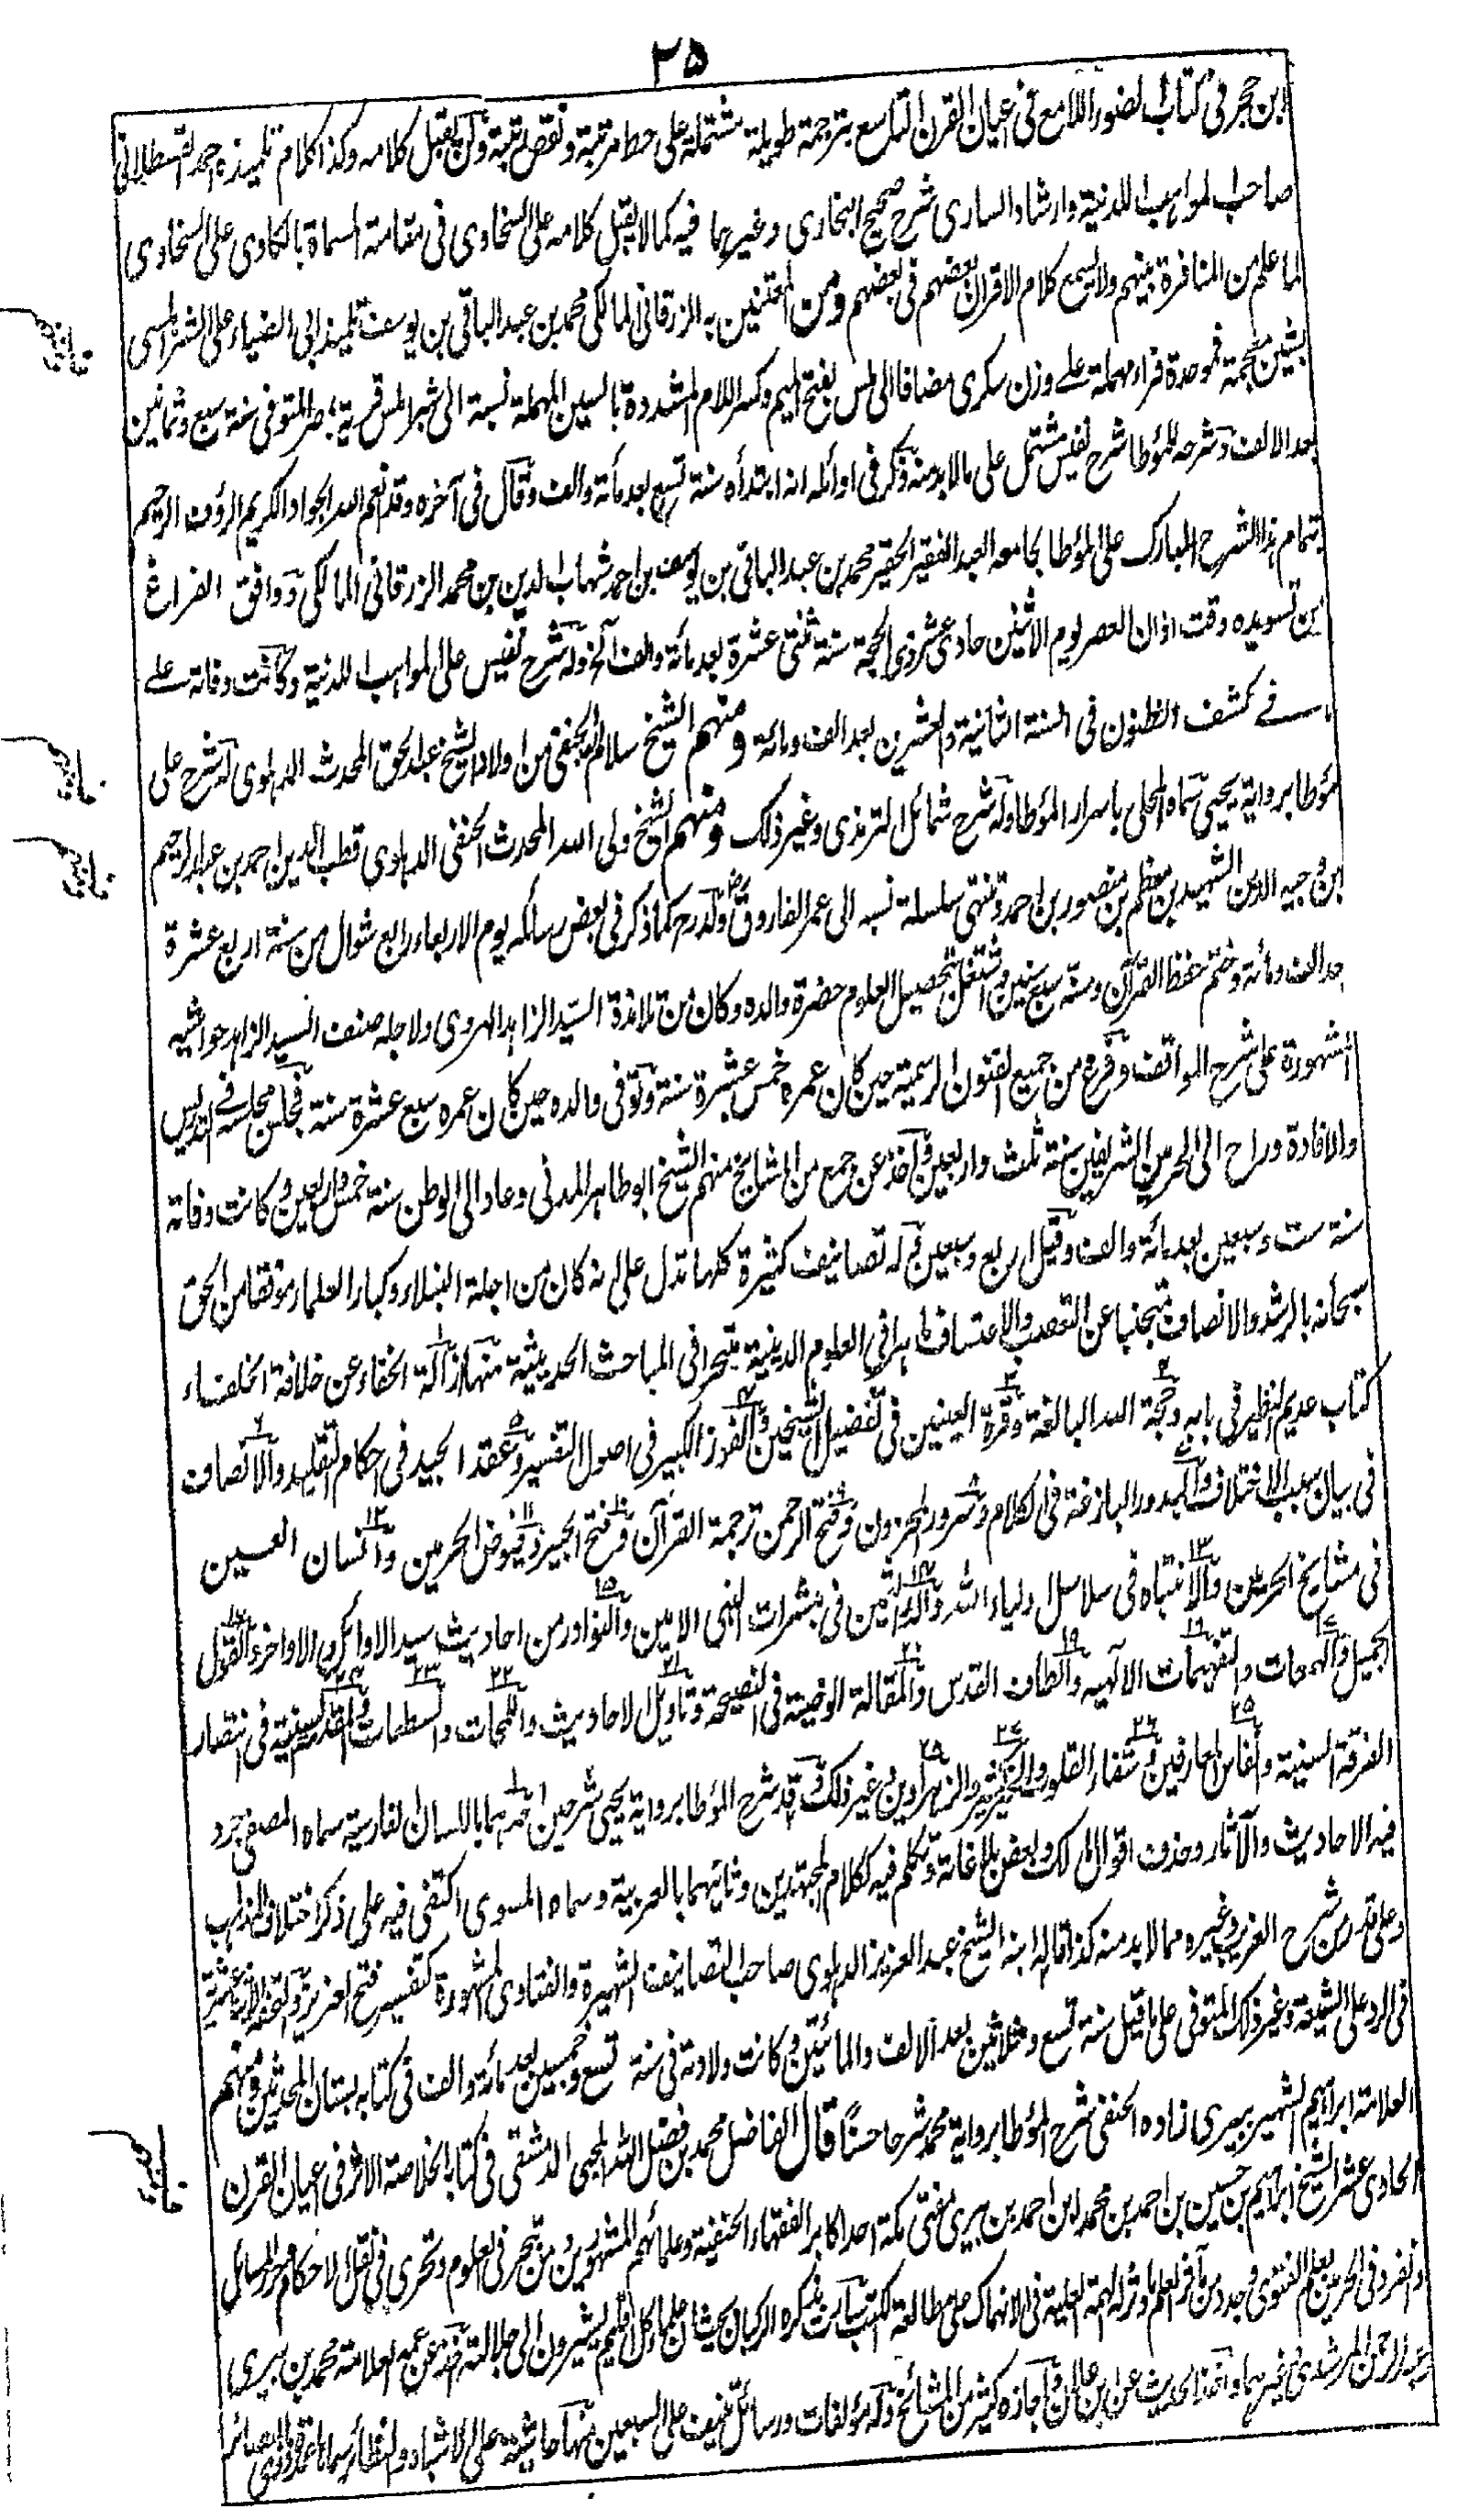 ٢٥
ابن حجر فى كتاب الضوء اللامع فى اعيان القرن التاسع بترجمة طويلة مشتملة على حط مرتبة ونقص رتبة ولن يقبل كلامه وكذا كلام تلميذه احمد القسطلانى
صاحب المواهب اللدنية وارشاد السارى شرح صحيح البخارى وغيرهما فيه كما لا يقبل كلامه على السخاوى فى مقامته المسماة بالكاوى على السخاوى
لما علم من المنافرة بينهم ولا يسمع كلام الاقران بعضهم فى بعضهم ومن المعتنين به الزرقانى المالكى محمد بن عبد الباقى بن يوسف تلميذ ابى الضياء على الشبراملسى
بشين معجمة فموحدة فراء مهملة على وزن سكرى مضافا الى ملس بفتح الميم وكسر اللام المشددة بالسين المهملة نسبة الى شبراملس قرية بمصر المتوفى سنة سبع وثمانين
بعد الالف وشرحه للمؤطا شرح نفيس مشتمل على مالابد منه وذكر فى اوائله انه ابتدأه سنة تسع بعد مائة والف وقال فى آخره وقد انعم الله الجواد الكريم الرؤف الرحيم
بتمام هذا الشرح المبارك على المؤطا لجامعه العبد الفقير الحقير محمد بن عبد الباقى بن يوسف بن احمد شهاب الدين بن محمد الزرقانى المالكى ووافق الفراغ
من تسويده وقت اذان العصر يوم الاثنين حادى عشر ذى الحجة سنة ثنتى عشرة بعد مائة والف آلخ وله شرح نفيس على المواهب اللدنية وكانت وفاته على
ما فے كشف الظنون فى السنة الثانية والعشرين بعد الف ومائة ومنهم الشيخ سلام الله الحنفى من اولاد الشيخ عبد الحق المحدث الدهلوى له شرح على
المؤطا برواية يحيى سماه المحلى باسرار المؤطا وله شرح شمائل الترمذى وغير ذلك ومنهم الشيخ ولى الله المحدث الحنفى الدهلوى قطب الدين احمد بن عبد الرحيم
ابن وجيه الدين الشهيد بن معظم بن منصور بن احمد وتنتهى سلسلة نسبه الى عمر الفاروق رض ولد رح كما ذكر فى بعض رسائله يوم الاربعاء رابع شوال من سنة اربع عشرة
بعد الف ومائة وختم حفظ القرآن وسنه سبع سنين واشتغل بتحصيل العلوم حضرة والده وكان من تلامذة السيد الزاهد الهروى ولاجله صنف السيد الزاهد حواشيه
المشهورة على شرح المواقف وفرغ من جميع الفنون الرسمية حين كان عمره خمس عشرة سنة وتوفى والده حين كان عمره سبع عشرة سنة فجلس مجلسه فے التدريس
والافادة وراح الى الحرمين الشريفين سنة ثلث واربعين وأخذ عن جمع من المشايخ منهم الشيخ ابو طاهر المدنى وعاد الى الوطن سنة خمس واربعين وكانت وفاته
سنة ست وسبعين بعد مائة والف وقيل اربع وسبعين وله تصانيف كثيرة كلها تدل على انه كان من اجلة النبلاء وكبار العلماء موفقا من الحق
سبحانه بالرشد والانصاف متجنبا عن التعصب والاعتساف ماهرا فى العلوم الدينية متبحرا فى المباحث الحديثية منها ازالة الخفاء عن خلافة الخلفاء
كتاب عديم النظير فى بابه وحجة الله البالغة وقرة العينين فى تفضيل الشيخين والفوز الكبير فى اصول التفسير وعقد الجيد فى احكام التقليد والانصاف
فى بيان سبب الاختلاف والبدور البازغة فى الكلام وسرور المحزون وفتح الرحمن ترجمة القرآن وفتح الخبير وفيوض الحرمين وانسان العين
فى مشايخ الحرمين والانتباه فى سلاسل اولياء الله والدر الثمين فى مبشرات النبى الامين والنوادر من احاديث سيد الاوائل والاواخر والقول
الجميل والهمعات والتفهيمات الالٓهيه والطاف القدس والمقالة الوضية فى النصيحة وتاويل الاحاديث واللمحات والسطعات والمقدمة السنية فى انتصار
الفرقة السنية وانفاس العارفين وشفاء القلوب والخير الكثير والزهراوين وغير ذلك وقد شرح المؤطا برواية يحيى شرحين احدهما باللسان الفارسية سماه المصفى جرد
فيه الاحاديث والآثار وحذف اقوال مالك وبعض بلاغاته وتكلم فيه ككلام المجتهدين وثانيهما بالعربية وسماه المسوى اكتفى فيه على ذكر اختلاف المذاهب
وعلى قدر من شرح الغريب وغيره مما لابد منه كذا قاله ابنه الشيخ عبد العزيز الدهلوى صاحب التصانيف الشهيرة والفتاوى المشهورة كتفسير فتح العزيز والتحفة الاثنا عشرية
فى الرد على الشيعة وغير ذلك المتوفى على ما قيل سنة تسع وثلاثين بعد الالف والمائتين وكانت ولادته فى سنة تسع وخمسين بعد مائة والف فى كتابه بستان المحدثين ومنهم
العلامة ابراهيم الشهير ببيرى زاده الحنفى شرح المؤطا برواية محمد شرحا حسنًا قال الفاضل محمد بن فضل الله المحبى الدمشقى فى كتابه خلاصة الاثر فى اعيان القرن
الحادى عشر الشيخ ابراهيم بن حسين بن احمد بن محمد ابن احمد بن بيرى مفتى مكة احد اكابر الفقهاء الحنفية وعلمائهم المشهورين ومن تبحر فى العلوم وتحرى فى نقل الاحكام وحرر المسائل
وانفرد فى الحرمين بعلم الفتوى وجدد من مآثر العلم ما دثر له الهمة العلية فى الانهماك على مطالعة الكتب سارت بذكره الركبان بحيث ان علماء كل اقليم يشيرون الى جلالته اخذ عن عمه العلامة محمد بن بيرى
وعبد الرحمن المرشدى وغيرهما واخذ الحديث عن ابن علان واجازه كثير من المشائخ وله مؤلفات ورسائل تنيف على السبعين منها حاشية على الاشباه والنظائر سماها عمدة ذوى البصائر